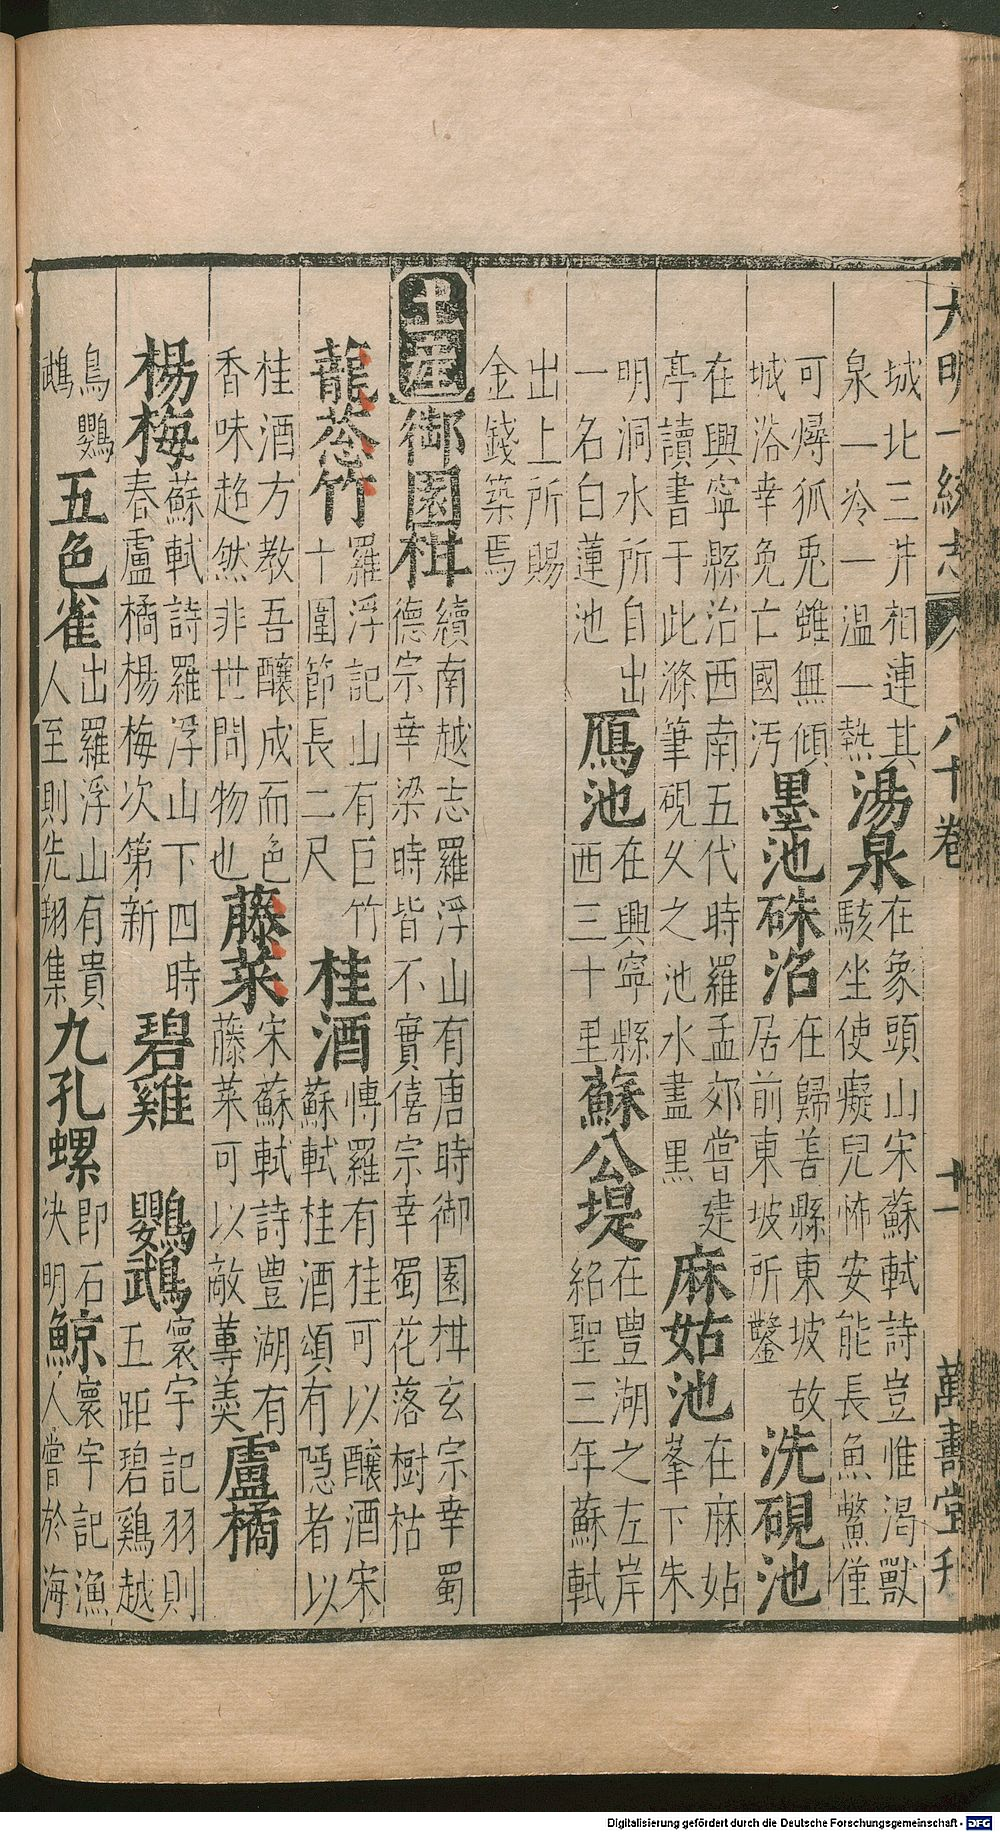 大明一統志 八十卷 十一 萬壽堂刊
城北三井相連其
泉一冷一温一熱
湯泉
在象頭山宋蘇軾詩豈惟渴獸
駭坐使癡兒怖安能長魚鱉僅
可燖狐兎雖無傾
城浴幸免亡國汚
墨池硃沼
在歸善縣東坡故
居前東坡所鑿
洗硯池
在興寧縣治西南五代時羅孟郊嘗建
亭讀書于此滌筆硯久之池水盡黒
麻姑池
在麻姑
峯下朱
明洞水所自出
一名白蓮池
鴈池
在興寧縣
西三十里
蘇公堤
在豊湖之左岸
紹聖三年蘇軾
出上所賜
金錢築焉
土產
御園柑
續南越志羅浮山有唐時御園柑玄宗幸蜀
德宗幸梁時皆不實僖宗幸蜀花落樹枯
龍葱竹
羅浮記山有巨竹
十圍節長二尺
桂酒
博羅有桂可以釀酒宋
蘇軾桂酒頌有隱者以
桂酒方教吾釀成而色
香味超然非世間物也
藤菜
宋蘇軾詩豊湖有
藤菜可以敵蓴羹
盧橘
楊梅
蘇軾詩羅浮山下四時
春盧橘楊梅次第新
碧雞
鸚鵡
寰宇記羽則
五距碧鷄越
鳥鸚
鵡
五色雀
出羅浮山有貴
人至則先翔集
九孔螺
即石
决明
鯨
寰宇記漁
人嘗於海
Digitalisierung gefördert durch die Deutsche Forschungsgemeinschaft - DFG